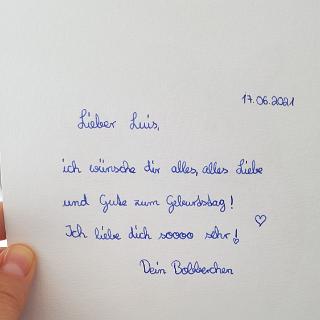 17.06.2021
Lieber Luis,
ich wünsche dir alles, alles Liebe
und Gute zum Geburtstag!
Ich liebe dich soooo sehr!
Dein Bobberchen